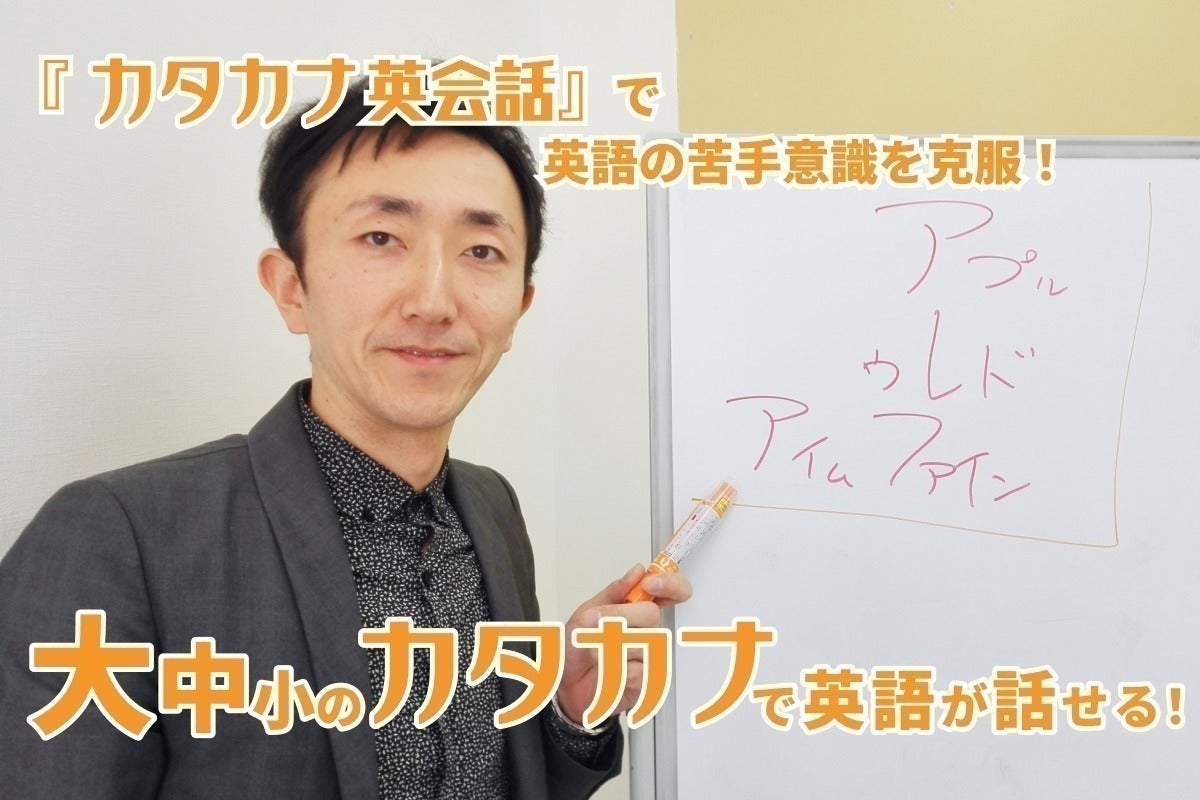 『カタカナ英会話』で
英語の苦手意識を克服！
アプル
ゥレド
アイム ファイン
大中小のカタカナで英語が話せる！